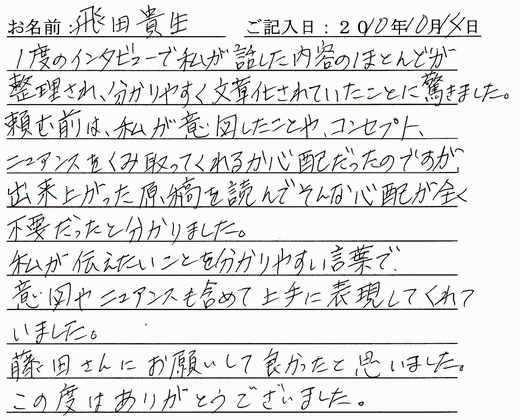 お名前：飛田貴生　ご記入日：2010年10月14日
1度のインタビューで私が話した内容のほとんどが
整理され、分かりやすく文章化されていたことに驚きました。
頼む前は、私が意図したことや、コンセプト、
ニュアンスをくみ取ってくれるか心配だったのですが、
出来上がった原稿を読んでそんな心配が全く
不要だったと分かりました。
私が伝えたいことを分かりやすい言葉で、
意図やニュアンスも含めて上手に表現してくれて
いました。
藤田さんにお願いして良かったと思いました。
この度はありがとうございました。